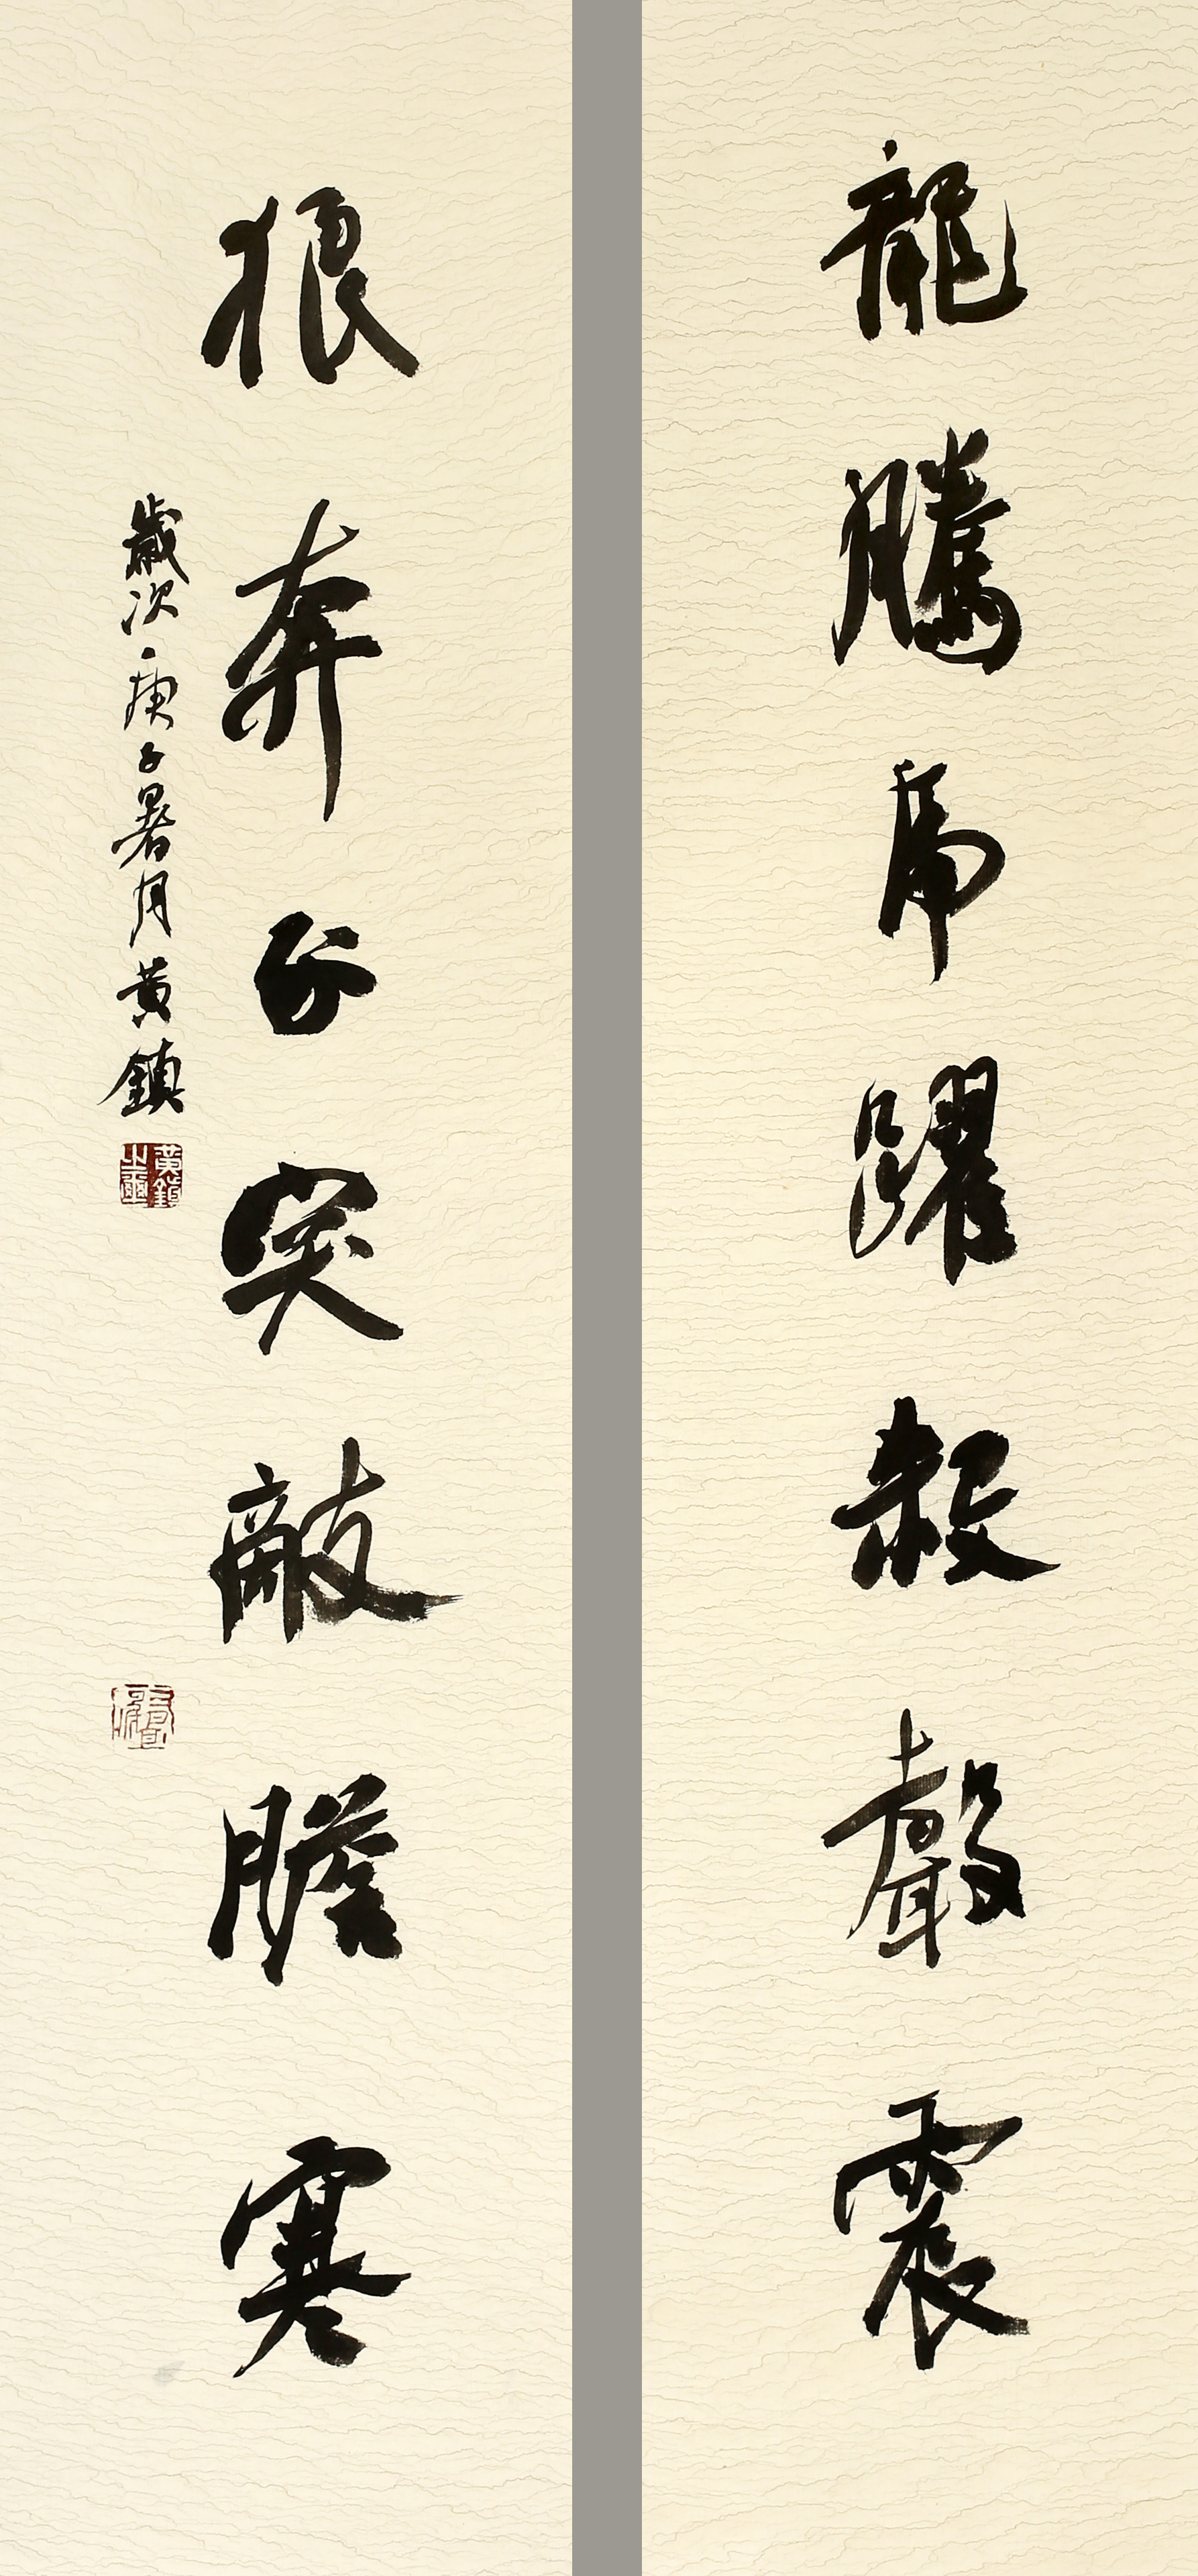 龍騰虎躍殺聲震
狼奔豕突敵膽寒
歲次庚子暑月黃鎮
黃鎮之璽